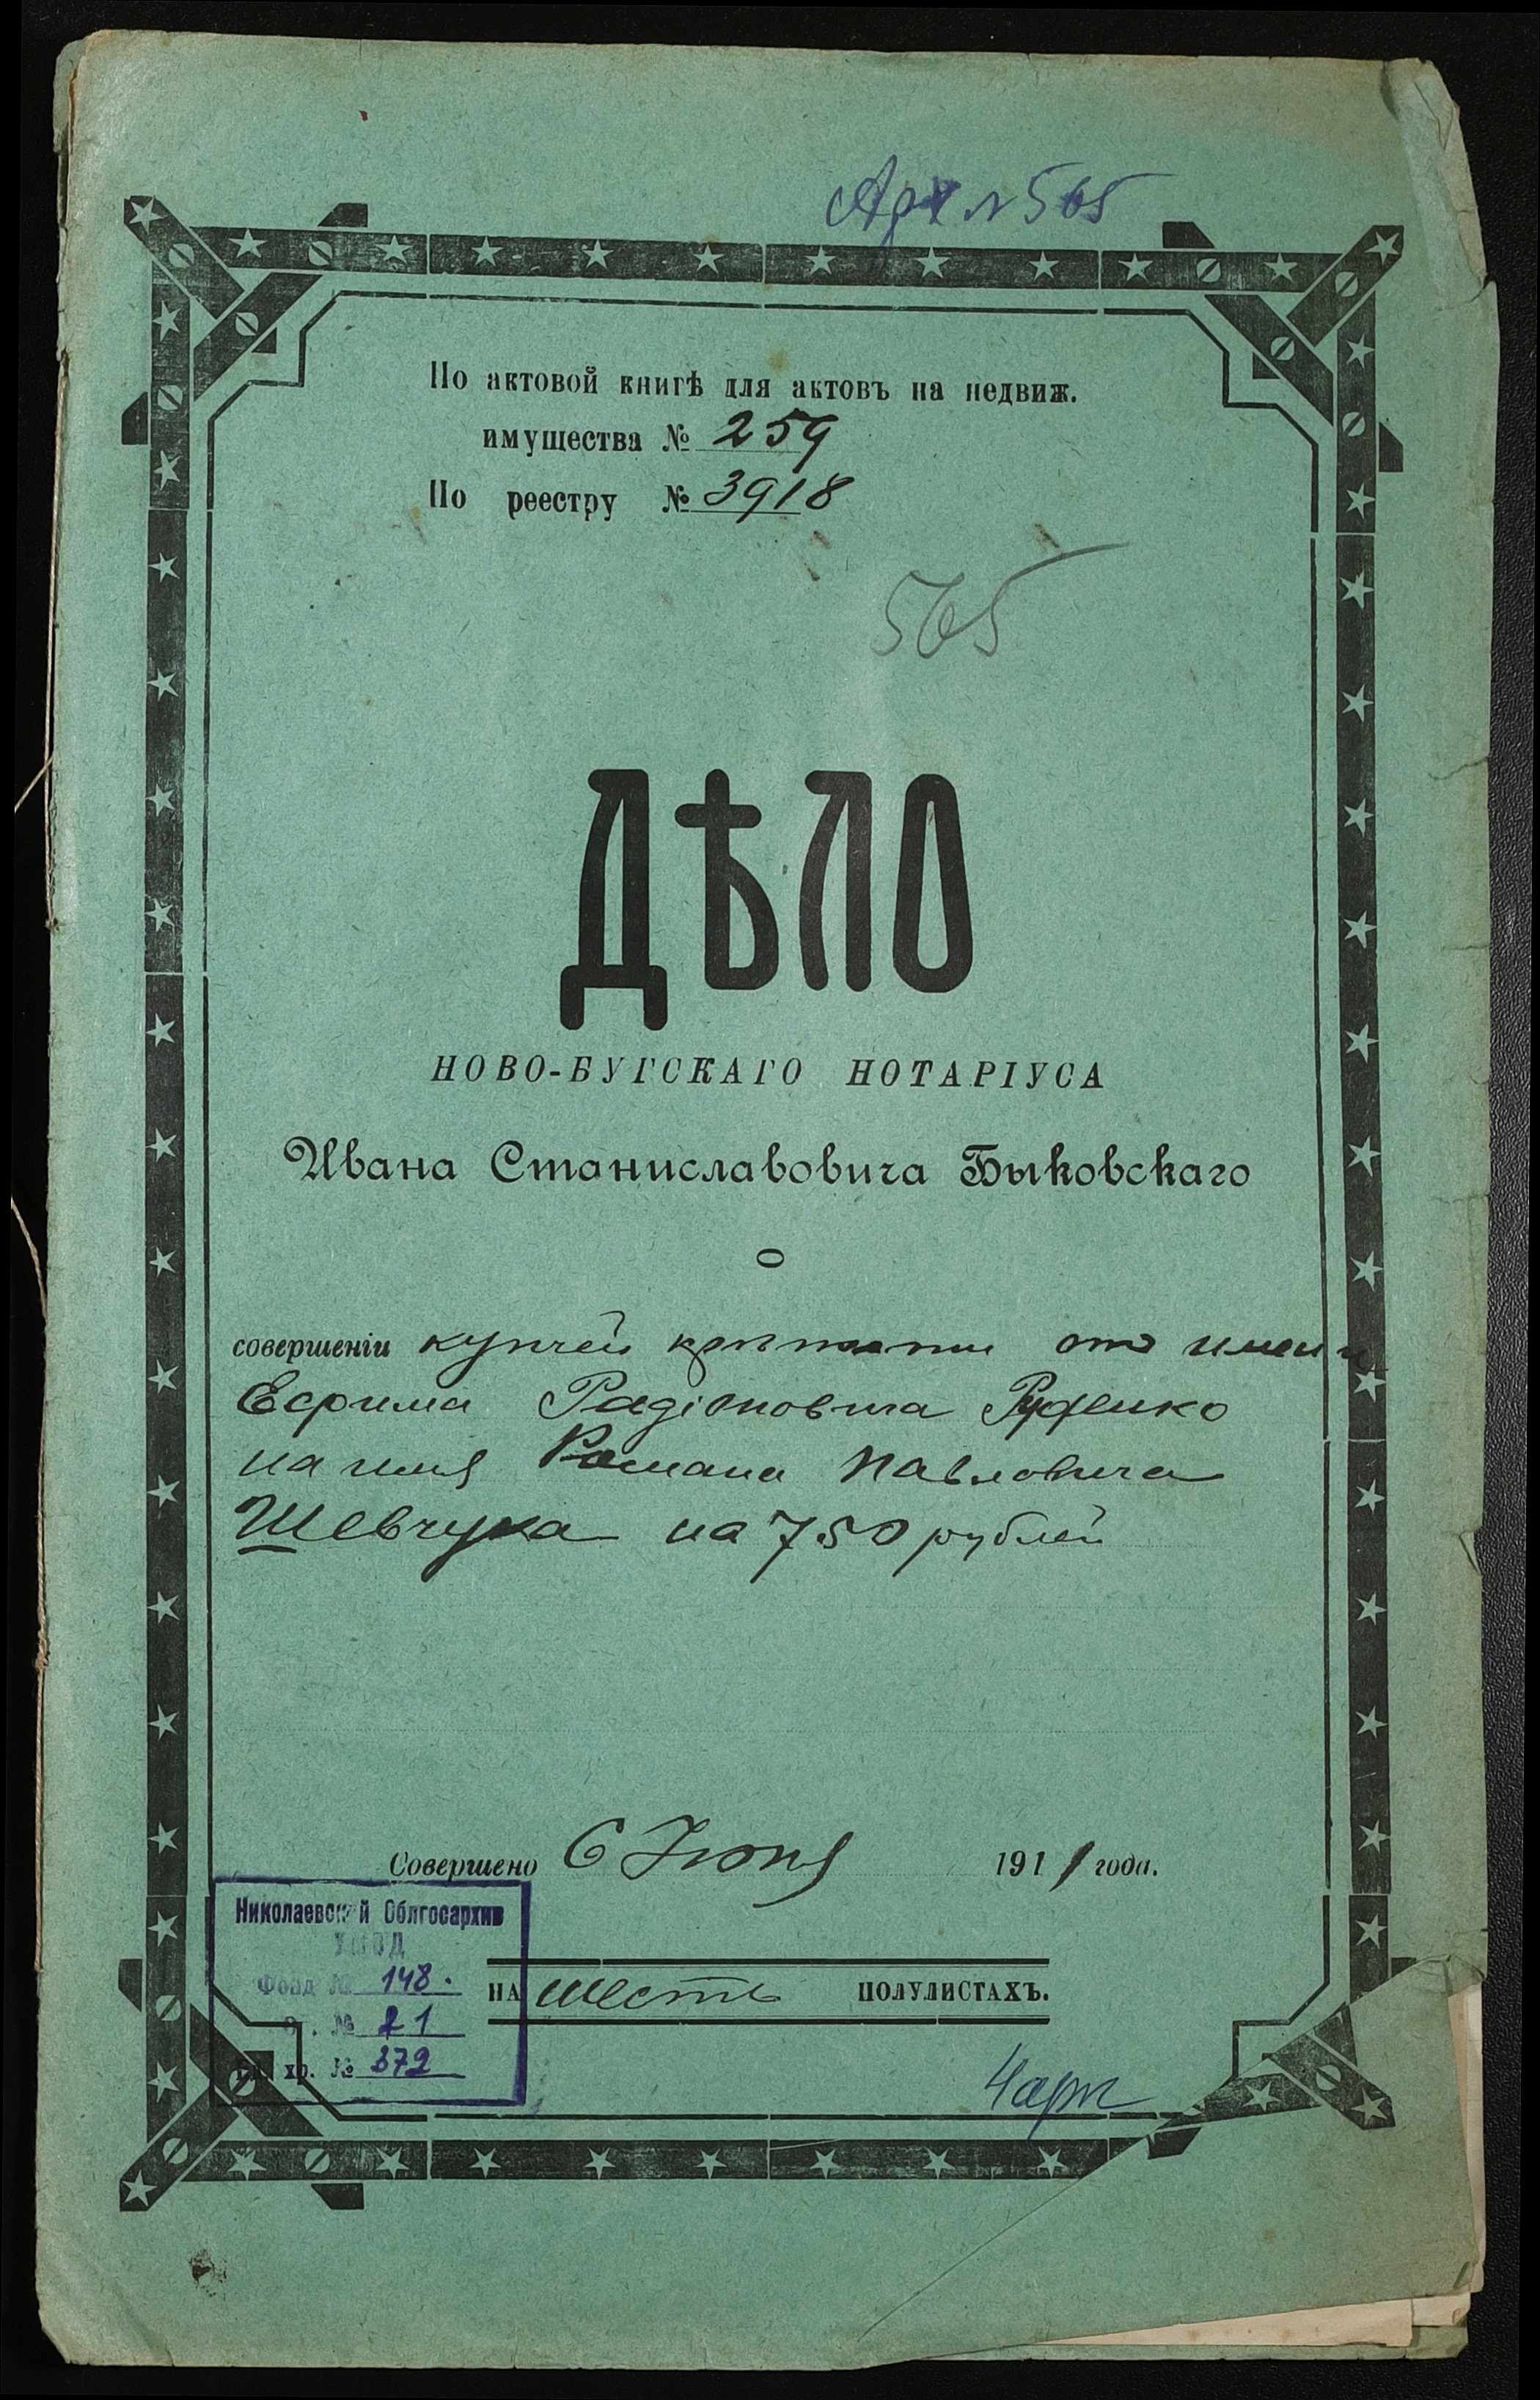 Арх № 565
По актовой книгѣ для актовъ на недвиж.
имущества № 259
По реестру № 3918
565
ДѢЛО
НОВО-БУГСКАГО НОТАРІУСА
Ивана Станиславовича Быковскаго
о
совершеніи купчей крѣпости отъ имени
Ефрима Радіоновича Руденко
на имя Романа Павловича
Шевчука на 750 рублей
Совершено 6 Іюня 1911 года.
Николаевский Облгосархив
Фонд № 148.
Оп. № 21
Ед. хр. № 372
НА шесть ПОЛУЛИСТАХЪ.